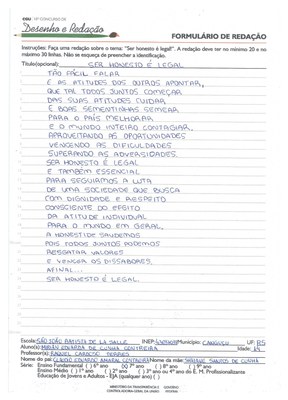 CGU 10º CONCURSO DE
Desenho e Redação
FORMULÁRIO DE REDAÇÃO
Instruções: Faça uma redação sobre o tema: "Ser honesto é legal!". A redação deve ter no mínimo 20 e no
máximo 30 linhas. Não se esqueça de preencher a identificação.
Título(opcional): SER HONESTO É LEGAL
TÃO FÁCIL FALAR
E AS ATITUDES DOS OUTROS APONTAR,
QUE TAL TODOS JUNTOS COMEÇAR
DAS SUAS ATITUDES CUIDAR
E BOAS SEMENTINHAS SEMEAR
PARA O PAÍS MELHORAR
E O MUNDO INTEIRO CONTAGIAR.
APROVEITANDO AS OPORTUNIDADES
VENCENDO AS DIFICULDADES
SUPERANDO AS ADVERSIDADES.
SER HONESTO É LEGAL
E TAMBÉM ESSENCIAL
PARA SEGUIRMOS A LUTA
DE UMA SOCIEDADE QUE BUSCA
COM DIGNIDADE E RESPEITO
CONSCIENTE DO EFEITO
DA ATITUDE INDIVIDUAL
PARA O MUNDO EM GERAL.
A HONESTIDE SAUDEMOS
POIS TODOS JUNTOS PODEMOS
RESGATAR VALORES
E VENCER OS DISSABORES,
AFINAL...
SER HONESTO É LEGAL.
Escola: SÃO JOÃO BATISTA DE LA SALLE INEP: Município: CANGUÇU UF: RS
Aluno(a): DA CUNHA Idade: 14
Professor(a): RAQUEL CARDOSO
Nome do pai: CLAUDIO EDUARDO AMARAL Nome da mãe: SANTOS DE CUNHA
Série: Ensino Fundamental ( ) 6º ano (X) 7º ano ( ) 8º ano ( ) 9º ano
Ensino Médio ( ) 1º ano ( ) 2º ano ( ) 3º ano ( ) 4º ano do E. M. Profissionalizante
Educação de Jovens e Adultos - EJA (apenas o 2º segmento)
MINISTÉRIO DA TRANSPARÊNCIA E GOVERNO
CONTROLADORIA-GERAL DA UNIÃO FEDERAL